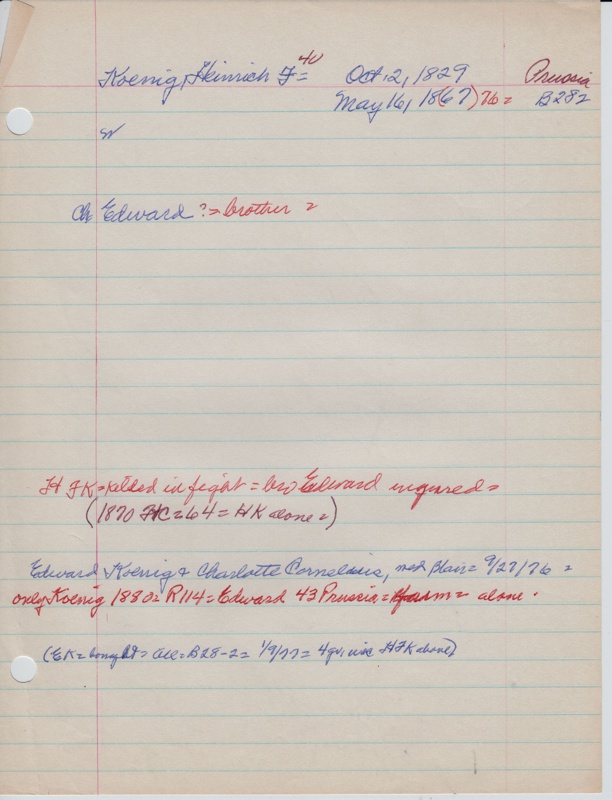 Koenig, Heinrich F = 40 Oct. 2, 1829 Prussia
May 16, 18(67)76 = B282
W
Ch Edward ? = brother =
H F K = killed in fight = bro Edward injured =
(1870 = 64 = HK alone =)
Edward Koenig & Charlotte Cornelius, med Blair = 9/27/76 =
only Koenig 1880 = R114 = Edward 43 Prussia = farm = alone .
(EK = bought = = B28-2 = 1/9/77 = 4 gr, inc HFK above)